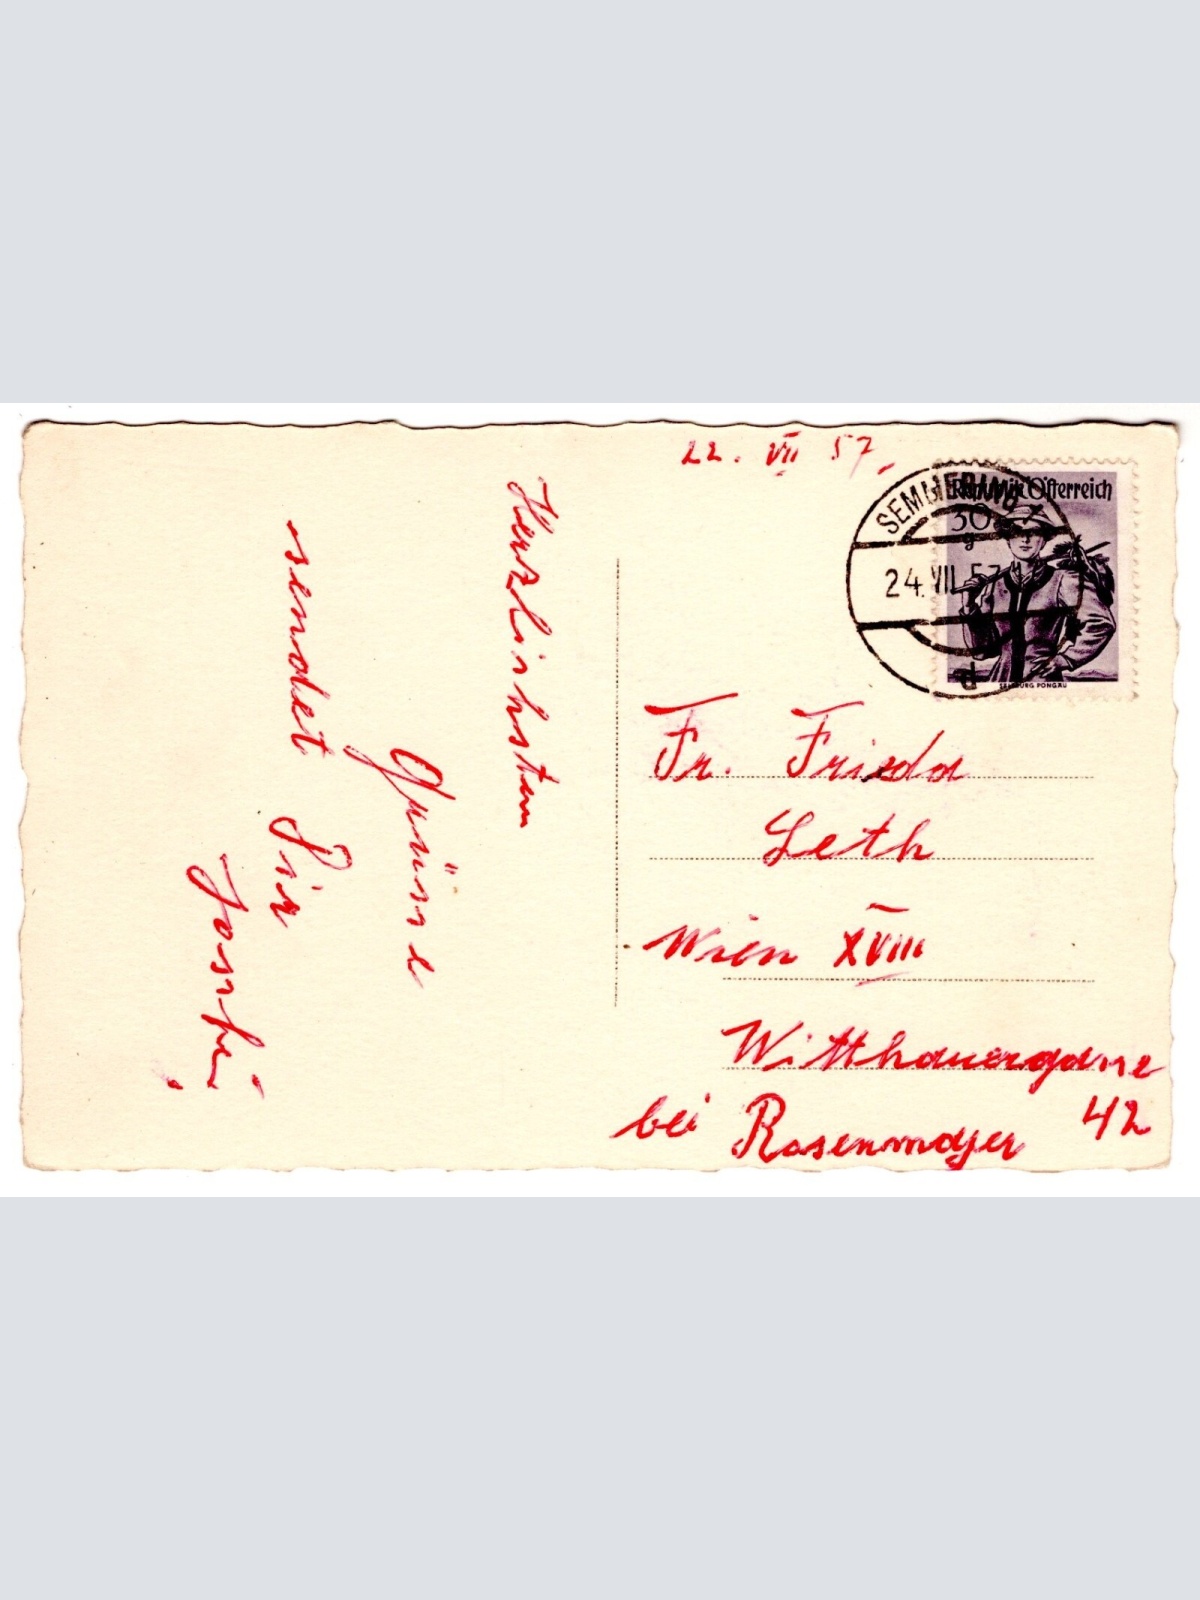 22. VII 57.
Herzlichsten
Grüsse
sendet Dir
Republik Österreich
30
g
SALZBURG PONGAU
SEMMERING
24.VII.57
d
Fr. Frieda
Leth
Wien XVIII
Witthauergasse
42
bei Rosenmayer